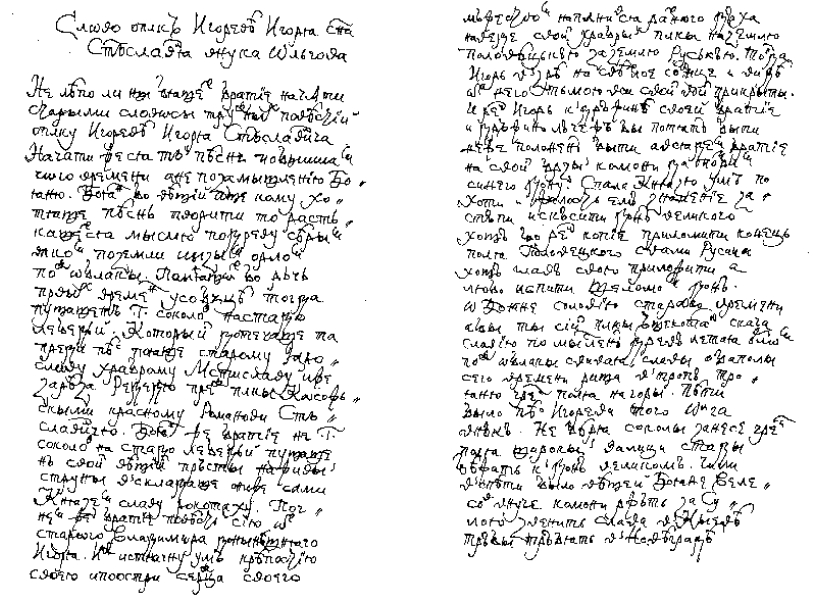 Слово оплкъ Игоревѣ Игоря сна
Стъславля внука Ольгова
Не лѣпо ли ны бяше братіе начяти
старыми словесы трудныⷯ повѣстіи
оплку Игоревѣ Игоря Стъславлича
Начати же ся тъ пѣснь по былинаⷨ
сего времени ане позамышленію Бо
яню. Боянъ бо вѣщіи аще кому хо
тяше пѣснь творити то растѣ
кашется мыслію подреву сѣрыⷨ
вълкоⷨ поземли шизыⷨ орлоⷨ
поⷣ облакы. Помняшеть бо рѣчь
първыⷯ временъ усобицѣ тогда
пущашеть Г҃ соколоⷡ настадо
лебедѣи. Который дотечаше та
преди пѣснь пояше старому Яро
славу храброму Мстиславу иже
зарѣза Редедю преⷣ плъкы Касожь
скыми красному Романови Стъ
славличю. Боянъ же братіе не Г҃
соколоⷡ на стадо лебедѣи пущаше
нъ своя вѣщіа пръсты на живаⷶ
струны въскладаше они же сами
Княземъ славу рокотаху. Поч
немъ же братіе повѣсть сію отъ
стараго Владимера до нынѣшняго
Игоря. Иже истягну умь крѣпостію
своею и поостри сердца своего
мужествомъ наплънився ратнаго духа
наведе своя храбрыя плъкы на землю
половѣцькую за землю Руськую. Тогда
Игорь възрѣ на свѣтлое солнце и видѣ
отъ него тьмою вся своя воя прикрыты.
И рече Игорь къ дружинѣ своей братіе
и дружино луцежъ бы потяту быти
неже полонену быти а всядемъ братіе
на свои бръзыя комони да позримъ
синего Дону. Спала Князю умь по
хоти и жалость ему знаменіе за
ступи искусити Дону великаго
хощу бо рече копіе приломити конець
поля Половецкого съ вами Русици
хощу главу свою приложити а
любо испити шеломомь Дону.
О Бояне соловію стараго времени
абы ты сіа плъкы ущекоталъ скача
славію по мыслену древу летая умомъ
поⷣ облакы свивая славы оба полы
сего времени рища въ тропу Тро
яню чресъ поля на горы. Пѣти
было пѣснь Игореви того Олга
внуку. Не буря соколы занесе чрезъ
поля широкая галици стады
бѣжать къ Дону великому. Чили
въспѣти было вѣщей Бояне Веле
совь внуче комони ржуть за Су
лою звенить слава въ Кыевѣ
трубы трубять въ Новѣградѣ